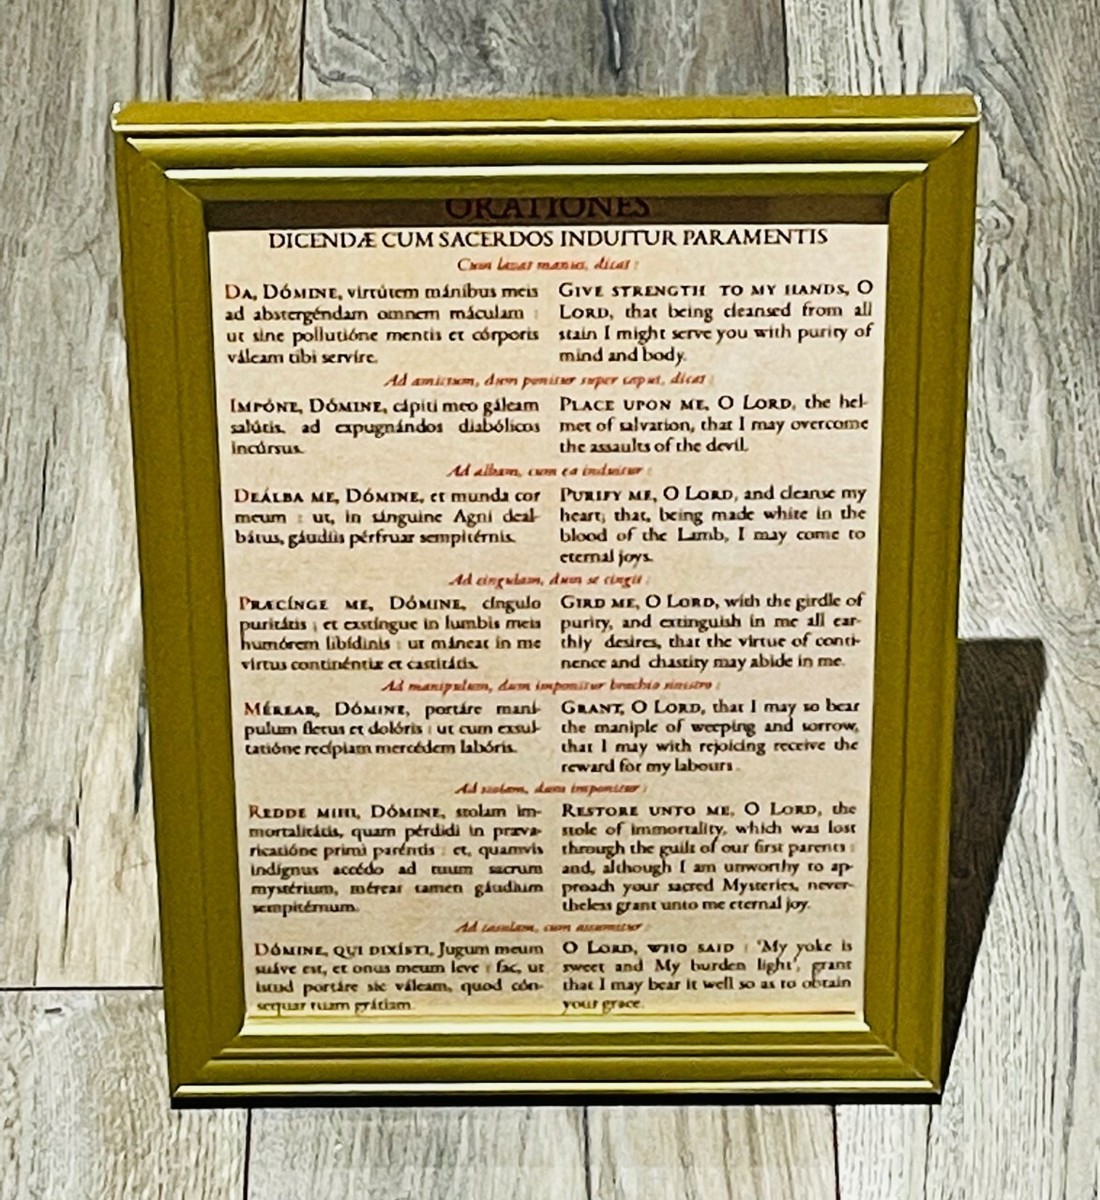 ORATIONES
DICENDÆ CUM SACERDOS INDUITUR PARAMENTIS
Cum lavat manus, dicat :
DA, DÓMINE, virtútem mánibus meis
ad abstergéndam omnem máculam :
ut sine pollutióne mentis et córporis
váleam tibi servíre.
GIVE STRENGTH TO MY HANDS, O
LORD, that being cleansed from all
stain I might serve you with purity of
mind and body.
Ad amictum, dum ponitur super caput, dicat :
IMPÓNE, DÓMINE, cápiti meo gáleam
salútis, ad expugnándos diabólicos
incúrsus.
PLACE UPON ME, O LORD, the hel-
met of salvation, that I may overcome
the assaults of the devil.
Ad albam, cum ea induitur :
DEÁLBA ME, DÓMINE, et munda cor
meum : ut, in sánguine Agni deal-
bátus, gáudiis pérfruar sempitérnis.
PURIFY ME, O LORD, and cleanse my
heart; that, being made white in the
blood of the Lamb, I may come to
eternal joys.
Ad cingulum, dum se cingit :
PRÆCÍNGE ME, DÓMINE, cíngulo
puritátis ; et exstíngue in lumbis meis
humórem libídinis : ut máneat in me
virtus continéntiæ et castitátis.
GIRD ME, O LORD, with the girdle of
purity, and extinguish in me all ear-
thly desires, that the virtue of conti-
nence and chastity may abide in me.
Ad manipulum, dum imponitur brachio sinistro :
MÉREAR, DÓMINE, portáre maní-
pulum fletus et dolóris : ut cum exsul-
tatióne recípiam mercédem labóris.
GRANT, O LORD, that I may so bear
the maniple of weeping and sorrow,
that I may with rejoicing receive the
reward for my labours.
Ad stolam, dum imponitur :
REDDE MIHI, DÓMINE, stolam im-
mortalitátis, quam pérdidi in præva-
ricatióne primi paréntis : et, quamvis
indígnus accédo ad tuum sacrum
mystérium, mérear tamen gáudium
sempitérnum.
RESTORE UNTO ME, O LORD, the
stole of immortality, which was lost
through the guilt of our first parents :
and, although I am unworthy to ap-
proach your sacred Mysteries, never-
theless grant unto me eternal joy.
Ad casulam, cum assumitur :
DÓMINE, QUI DIXÍSTI, Jugum meum
suáve est, et onus meum leve : fac, ut
istud portáre sic váleam, quod cón-
sequar tuam grátiam.
O LORD, WHO SAID : 'My yoke is
sweet and My burden light', grant
that I may bear it well so as to obtain
your grace.